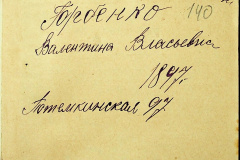 Горбенко 140
Валентина Власьевна
1897
Потемкинская 97.